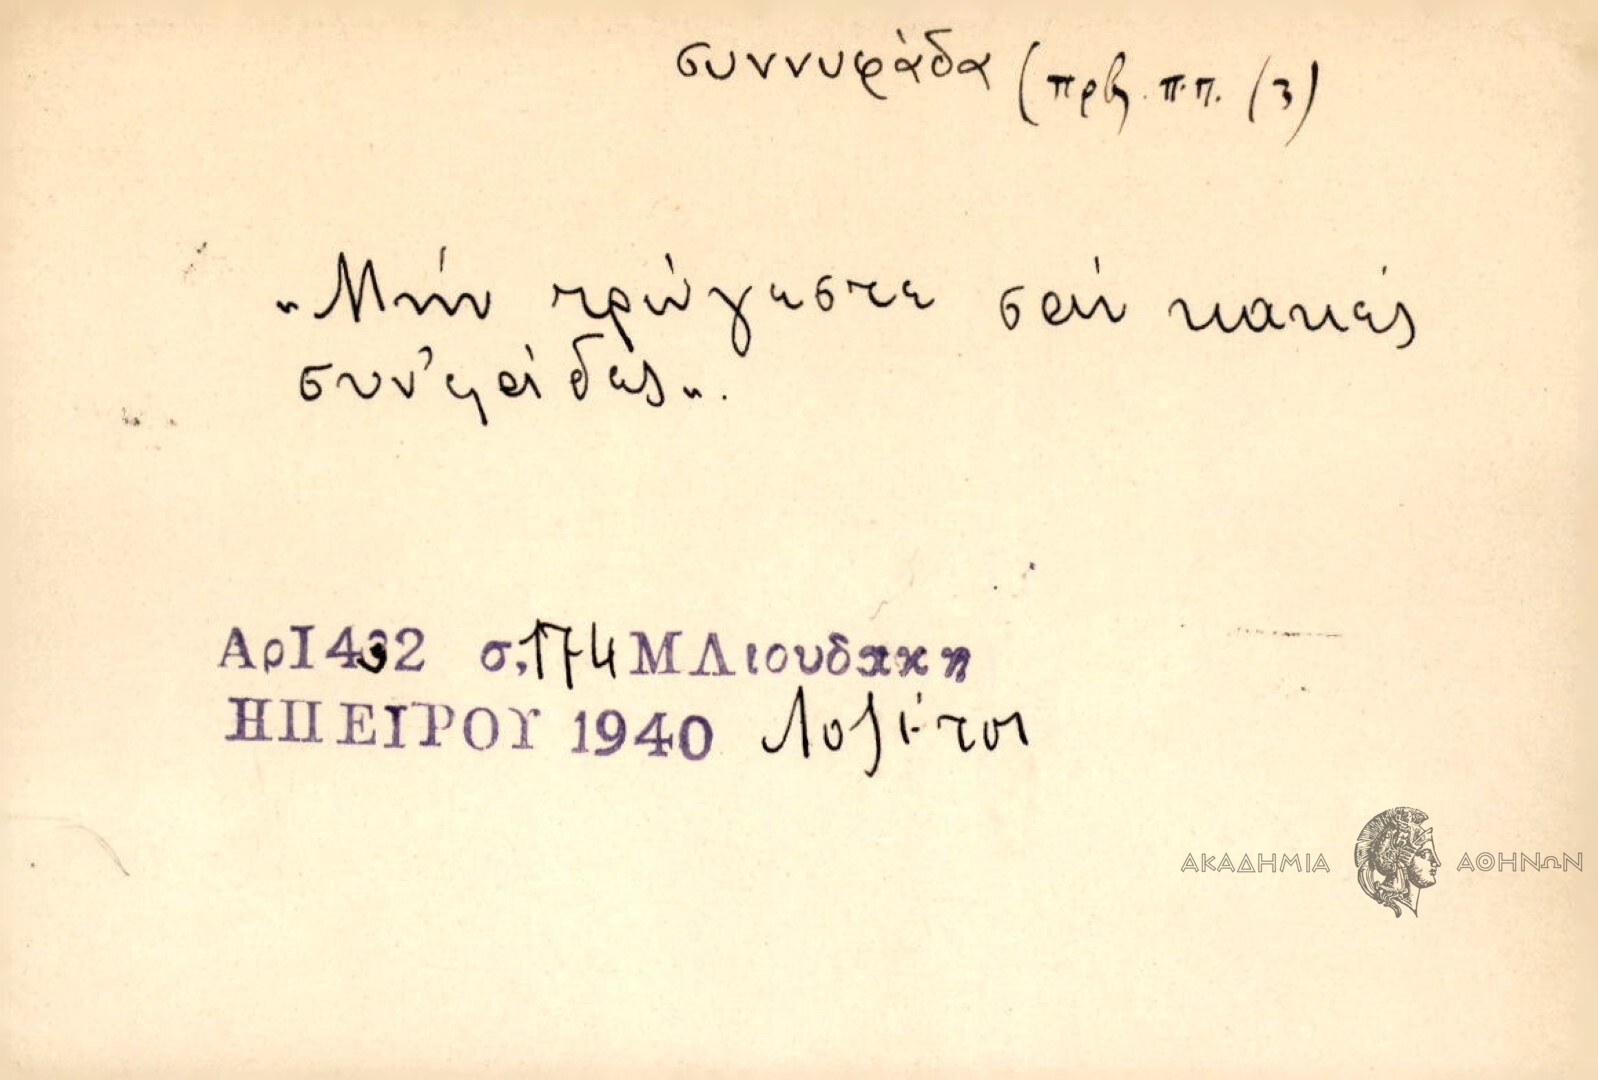 συννυφάδα (πρβ. π.π. (3)
„Μήν τρώγεστε σάν κακές
συν'φάδες„.
Αρ1432 σ.174 Μ Λιουδακη
ΗΠΕΙΡΟΥ 1940
ΑΚΑΔΗΜΙΑ ΑΘΗΝΩΝ